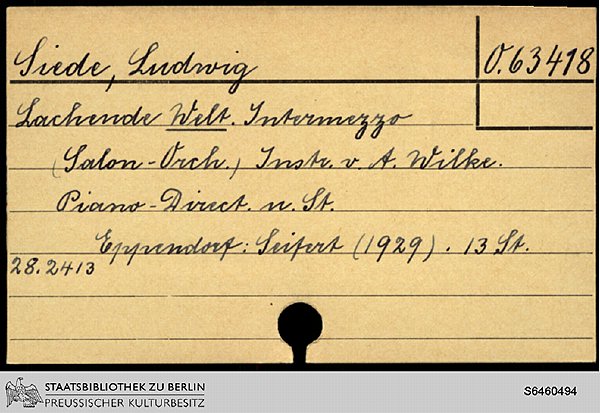 Siede, Ludwig
O.63418
Lachende Welt. Intermezzo
(Salon-Orch.) Instr. v. A. Wilke.
Piano-Direct. u. St.
Eppendorf: Seifert (1929). 13 St.
28.2413
STAATSBIBLIOTHEK ZU BERLIN
PREUSSISCHER KULTURBESITZ
S6460494